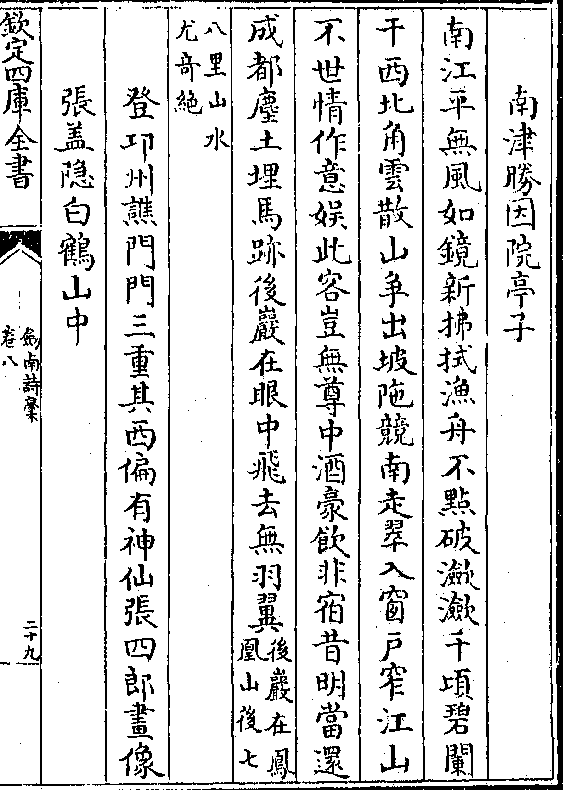 南津勝因院亭子
南江平無風如鏡新拂拭漁舟不點破瀲瀲千頃碧闌
干西北角雲散山争出坡陁競南走翠入窗戸窄江山
不世情作意娱此客豈無尊中酒豪飲非宿昔明當還
成都塵土埋馬跡後巖在眼中飛去無羽翼後巖在鳳
凰山後七
八里山水
尤竒絶
登卭州譙門門三重其西偏有神仙張四郎畫像
張盖隠白鶴山中
欽定四庫全書
劔南詩稾
卷八
二十九